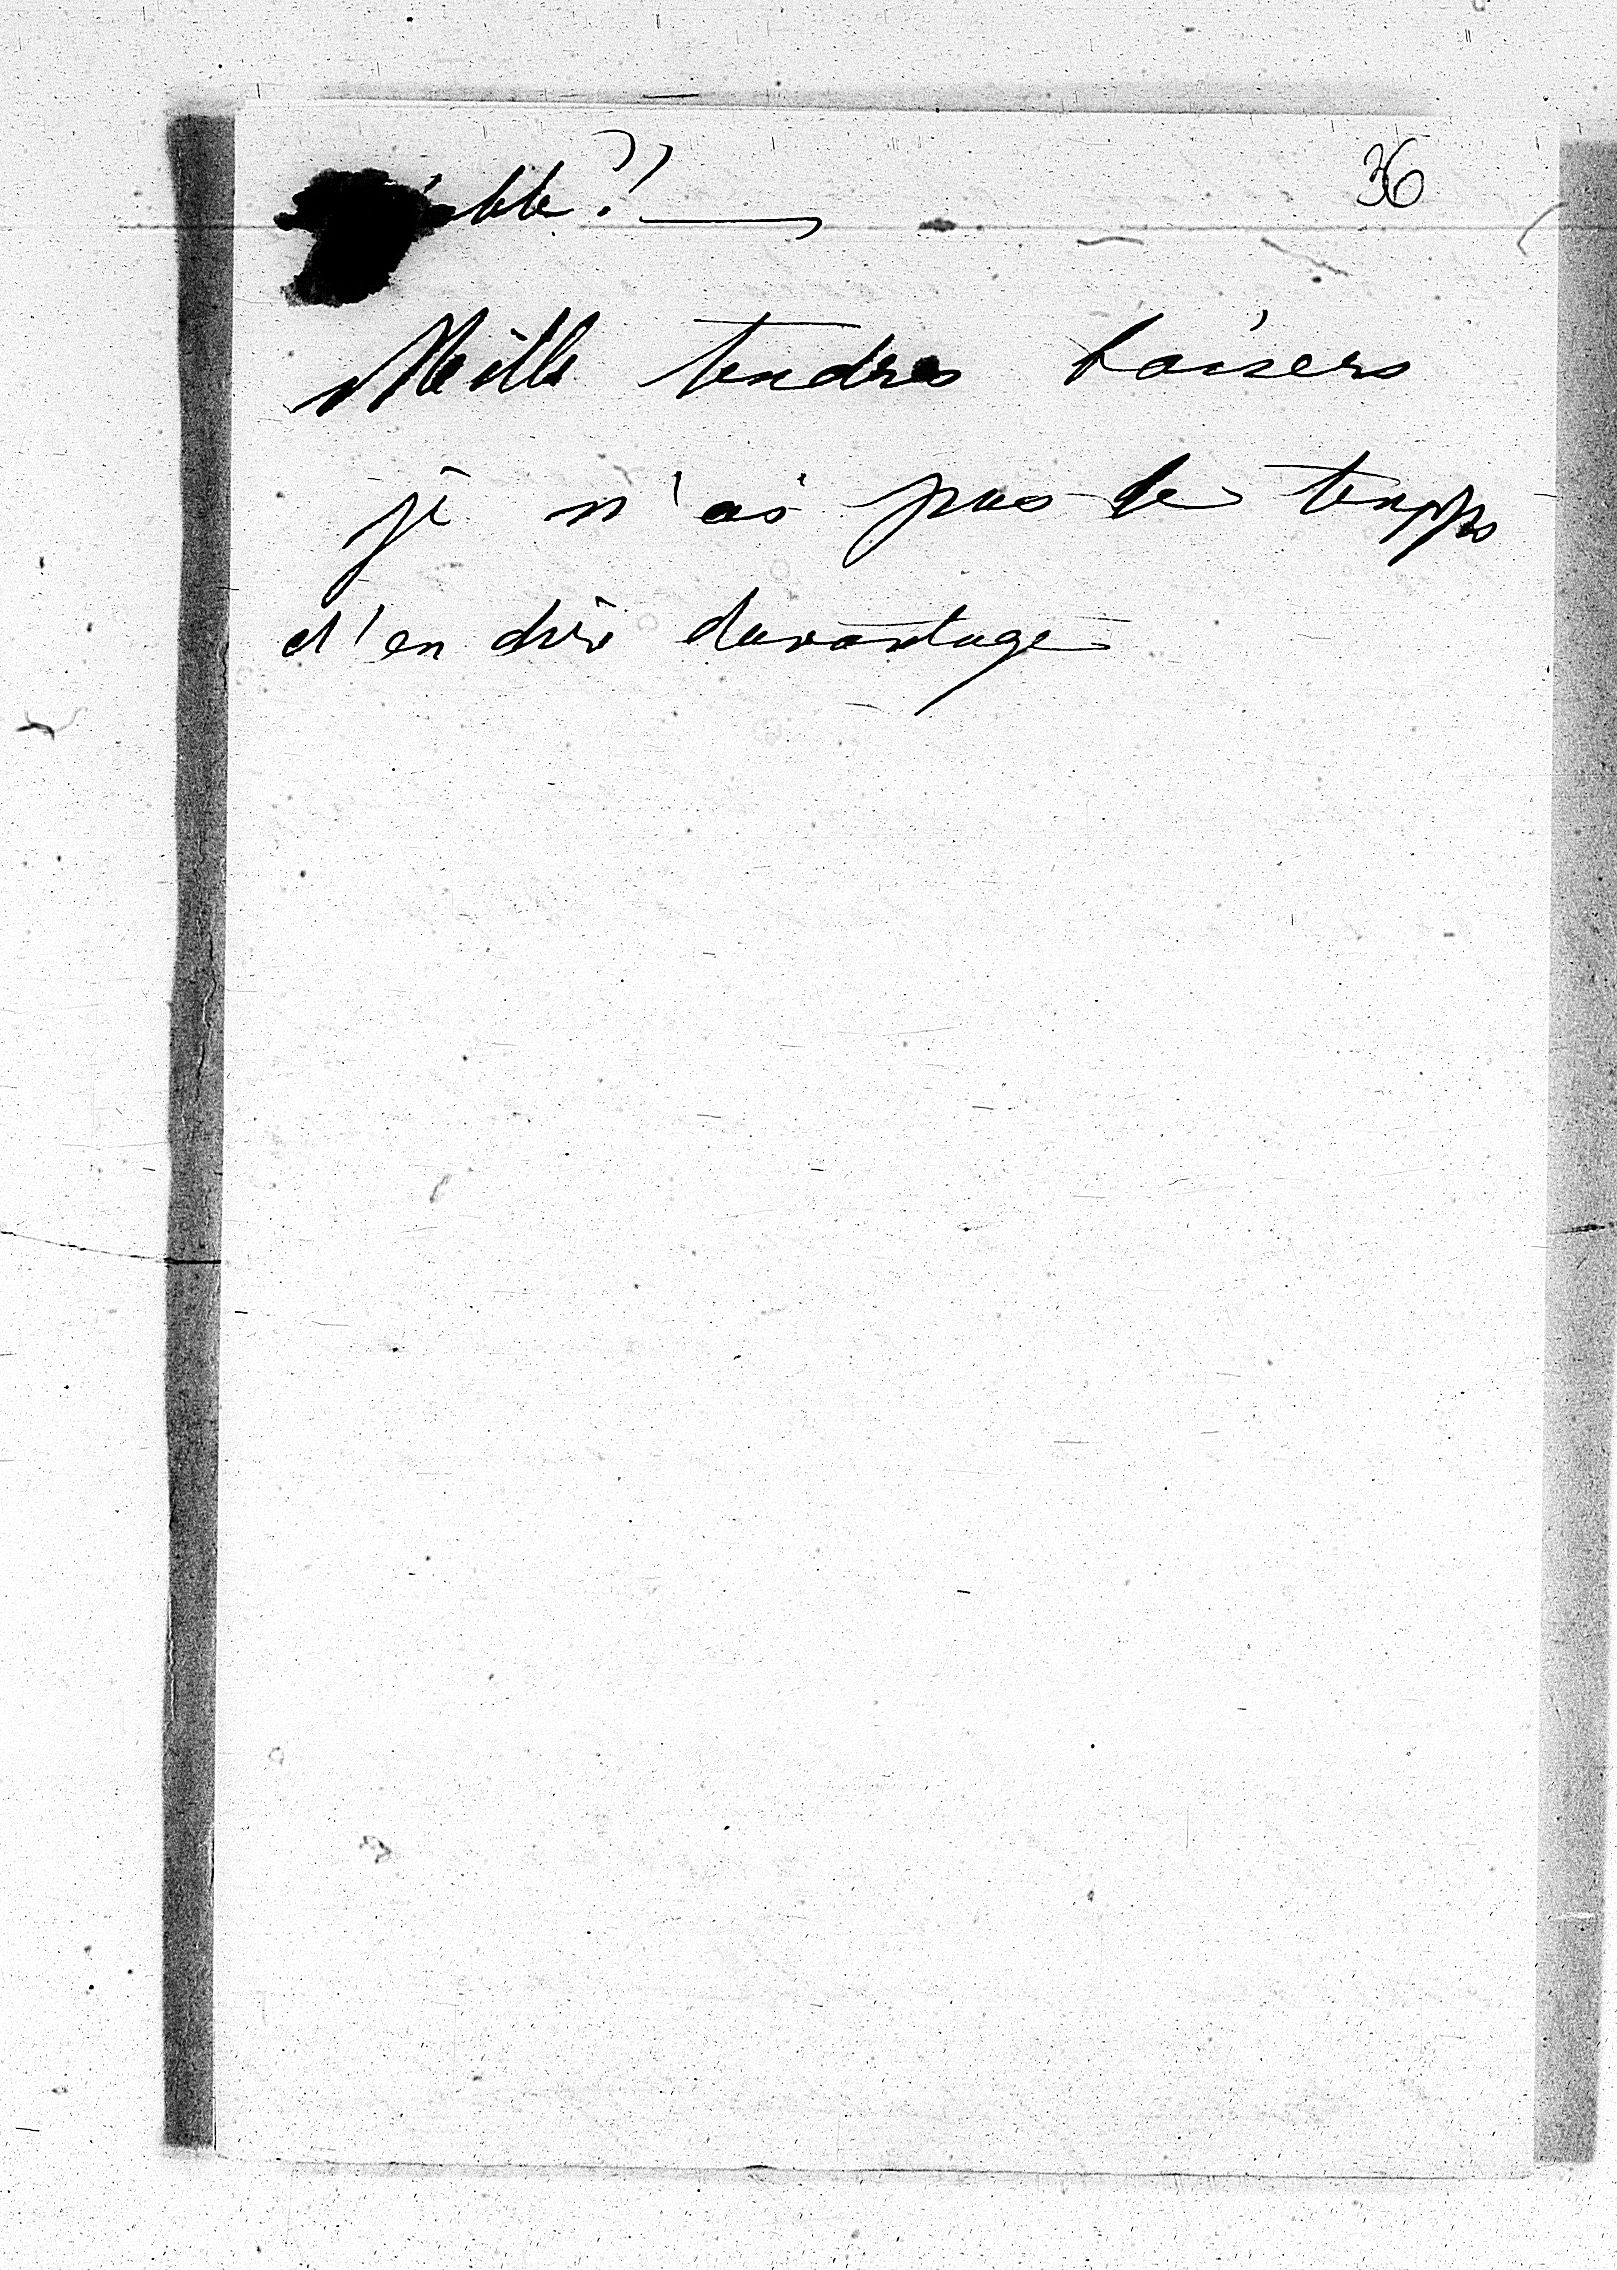 36
Mille tendres baisers
je n'ai pas le temps
d'en dire davantage